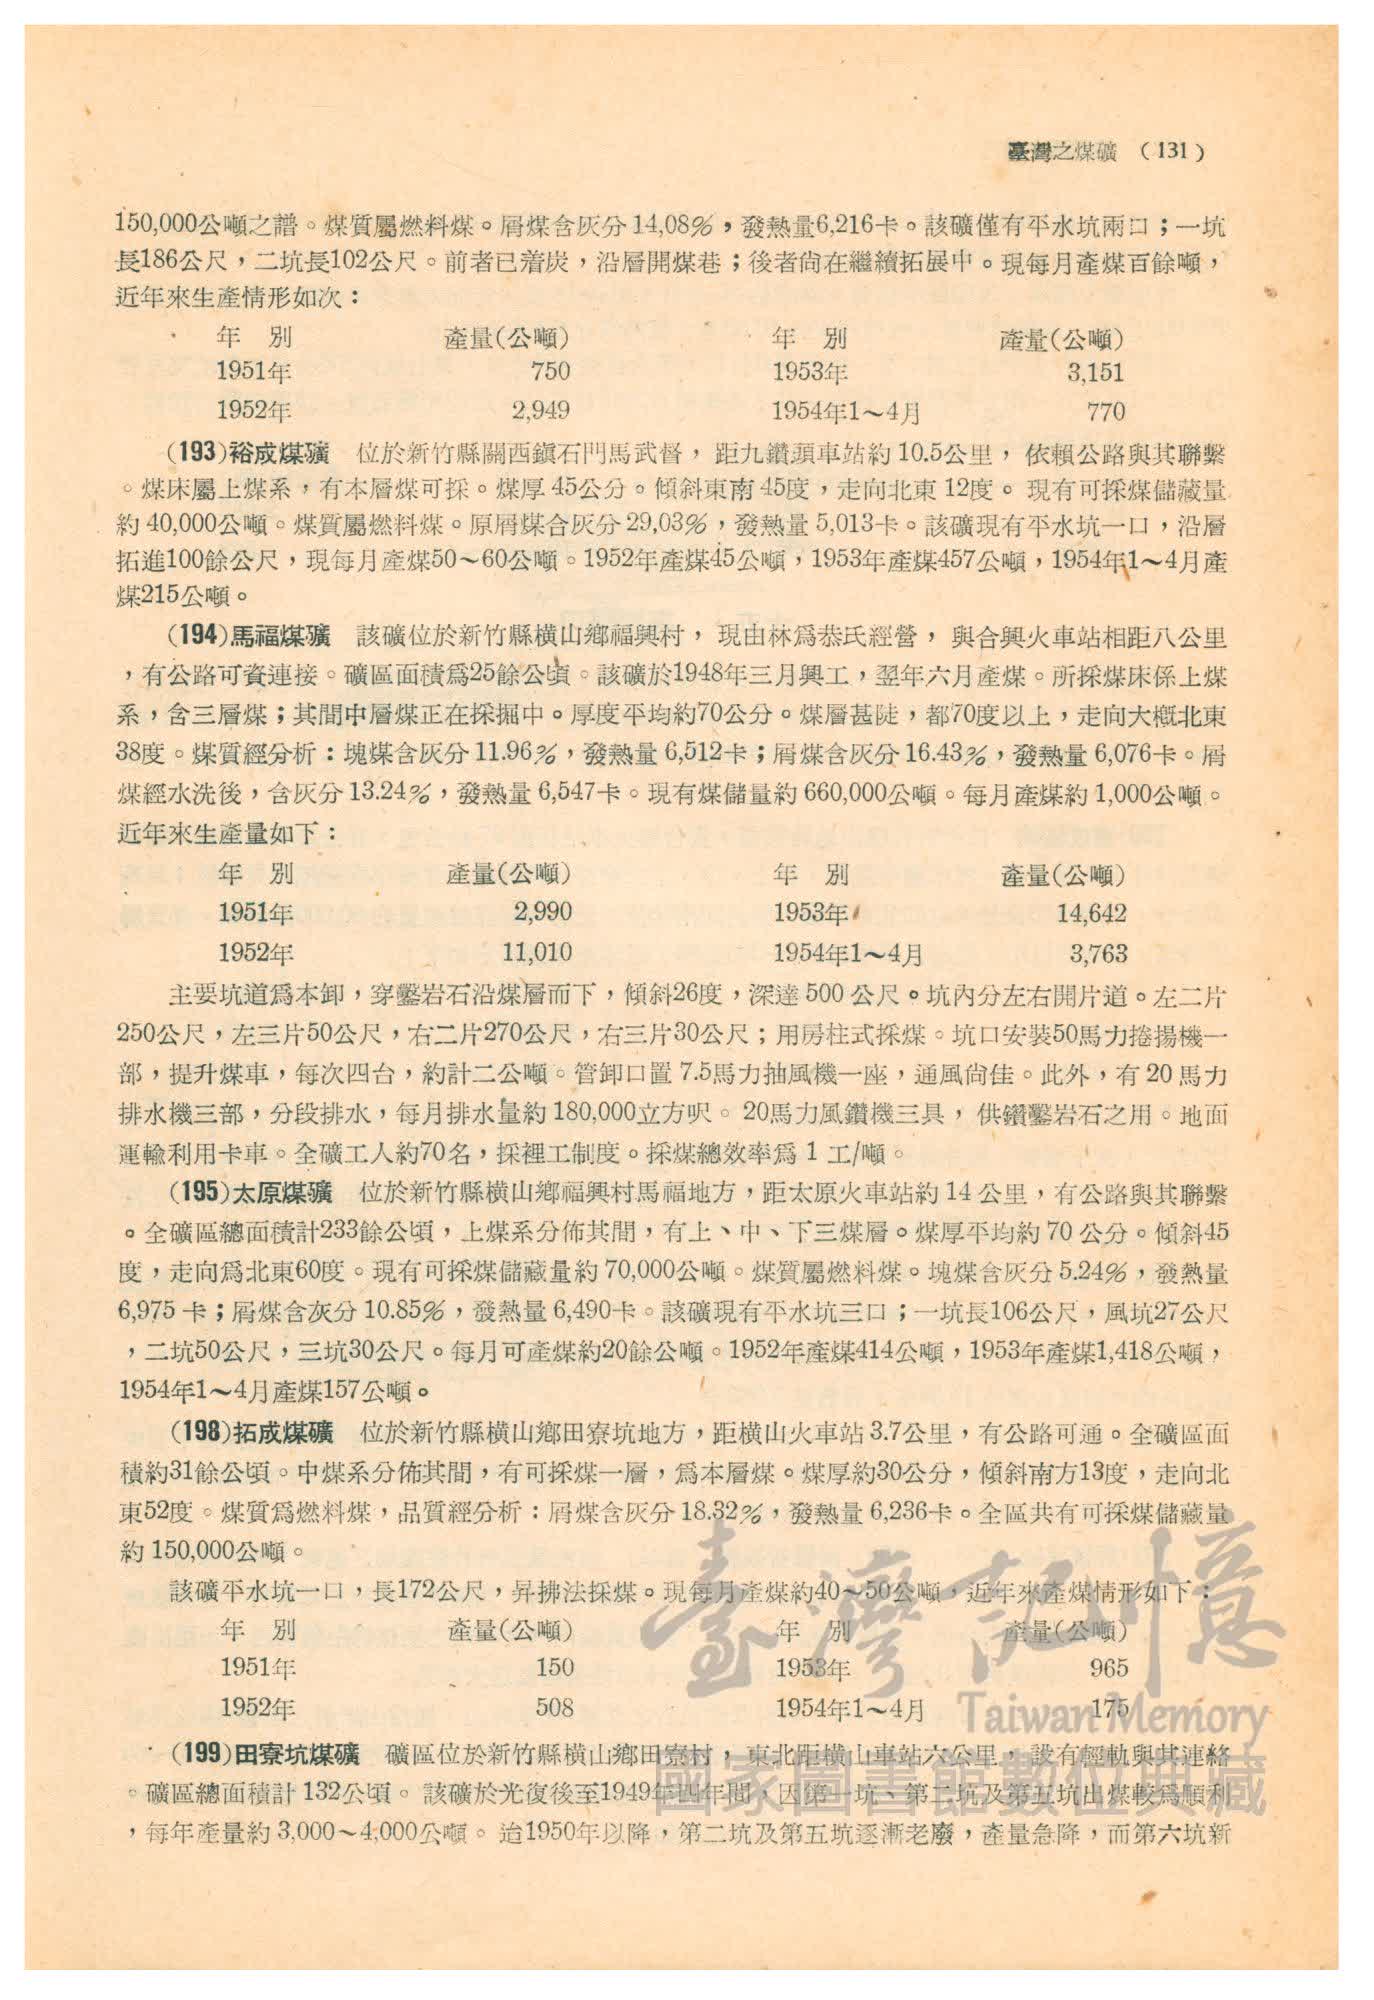 臺灣之煤礦 (131)
150,000公噸之譜。煤質屬燃料煤。屑煤含灰分14,08%，發熱量6,216卡。該礦僅有平水坑兩口；一坑
長186公尺，二坑長102公尺。前者已着炭，沿層開煤巷；後者尙在繼續拓展中。現每月產煤百餘噸，
近年來生產情形如次：
年　別　產量(公噸)　年　別　產量(公噸)
1951年　750　1953年　3,151
1952年　2,949　1954年1～4月　770
(193)裕成煤礦　位於新竹縣關西鎭石門馬武督，距九鑽頭車站約10.5公里，依賴公路與其聯繫
。煤床屬上煤系，有本層煤可採。煤厚45公分。傾斜東南45度，走向北東12度。現有可採煤儲藏量
約40,000公噸。煤質屬燃料煤。原屑煤合灰分29,03%，發熱量5,013卡。該礦現有平水坑一口，沿層
拓進100餘公尺，現每月產煤50～60公噸。1952年產煤45公噸，1953年產煤457公噸，1954年1～4月產
煤215公噸。
(194)馬福煤礦　該礦位於新竹縣橫山鄕福興村，現由林爲恭氏經營，與合興火車站相距八公里
，有公路可資連接。礦區面積爲25餘公頃。該礦於1948年三月興工，翌年六月產煤。所採煤床係上煤
系，含三層煤；其間中層煤正在採掘中。厚度平均約70公分。煤層甚陡，都70度以上，走向大槪北東
38度。煤質經分析：塊煤含灰分11.96%，發熱量6,512卡；屑煤含灰分16.43%，發熱量6,076卡。屑
煤經水洗後，含灰分13.24%，發熱量6,547卡。現有煤儲量約660,000公噸。每月產煤約1,000公噸。
近年來生產量如下：
年　別　產量(公噸)　年　別　產量(公噸)
1951年　2,990　1953年　14,642
1952年　11,010　1954年1～4月　3,763
主要坑道爲本卸，穿鑿岩石沿煤層而下，傾斜26度，深達500公尺。坑內分左右開片道。左二片
250公尺，左三片50公尺，右二片270公尺，右三片30公尺；用房柱式採煤。坑口安裝50馬力捲揚機一
部，提升煤車，每次四台，約計二公噸。管卸口置7.5馬力抽風機一座，通風尙佳。此外，有20馬力
排水機三部，分段排水，每月排水量約180,000立方呎。20馬力風鑽機三具，供鑽鑿岩石之用。地面
運輸利用卡車。全礦工人約70名，採裡工制度。採煤總效率爲1工/噸。
(195)太原煤礦　位於新竹縣橫山鄕福興村馬福地方，距太原火車站約14公里，有公路與其聯繫
。全礦區總面積計233餘公頃，上煤系分佈其間，有上、中、下三煤層。煤厚平均約70公分。傾斜45
度，走向爲北東60度。現有可採煤儲藏量約70,000公噸。煤質屬燃料煤。塊煤含灰分5.24%，發熱量
6,975卡；屑煤含灰分10.85%，發熱量6,490卡。該礦現有平水坑三口；一坑長106公尺，風坑27公尺
，二坑50公尺，三坑30公尺。每月可產煤約20餘公噸。1952年產煤414公噸，1953年產煤1,418公噸，
1954年1～4月產煤157公噸。
(198)拓成煤礦　位於新竹縣橫山鄕田寮坑地方，距橫山火車站3.7公里，有公路可通。全礦區面
積約31餘公頃。中煤系分佈其間，有可採煤一層，爲本層煤。煤厚約30公分，傾斜南方13度，走向北
東52度。煤質爲燃料煤，品質經分析：屑煤含灰分18.32%，發熱量6,236卡。全區共有可採煤儲藏量
約150,000公噸。
該礦平水坑一口，長172公尺，昇拂法採煤。現每月產煤約40～50公噸，近年來產煤情形如下：
年　別　產量(公噸)　年　別　產量(公噸)
1951年　150　1953年　965
1952年　508　1954年1～4月　175
(199)田寮坑煤礦　礦區位於新竹縣橫山鄕田寮村，東北距橫山車站六公里，設有輕軌與其連絡
。礦區總面積計132公頃。該礦於光復後至1949年四年間，因第一坑、第二坑及第五坑出煤較爲順利
，每年產量約3,000～4,000公噸。迨1950年以降，第二坑及第五坑逐漸老廢，產量急降，而第六坑新
臺灣記憶
Taiwan Memory
國家圖書館數位典藏